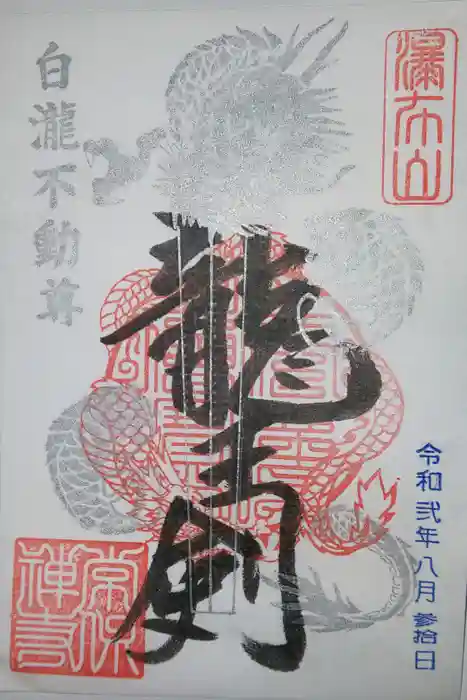 瀑布山
令和弐年八月参拾日
龍
白瀧不動尊
常保
禅寺